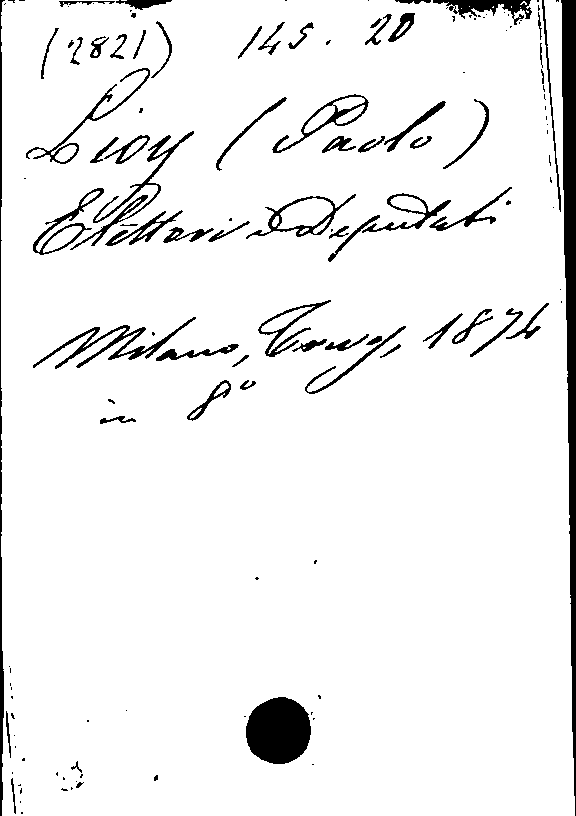 (2821) 145. 20
Lioy (Paolo)
Elettori e Deputati
Milano, Treves, 1874
in 8º